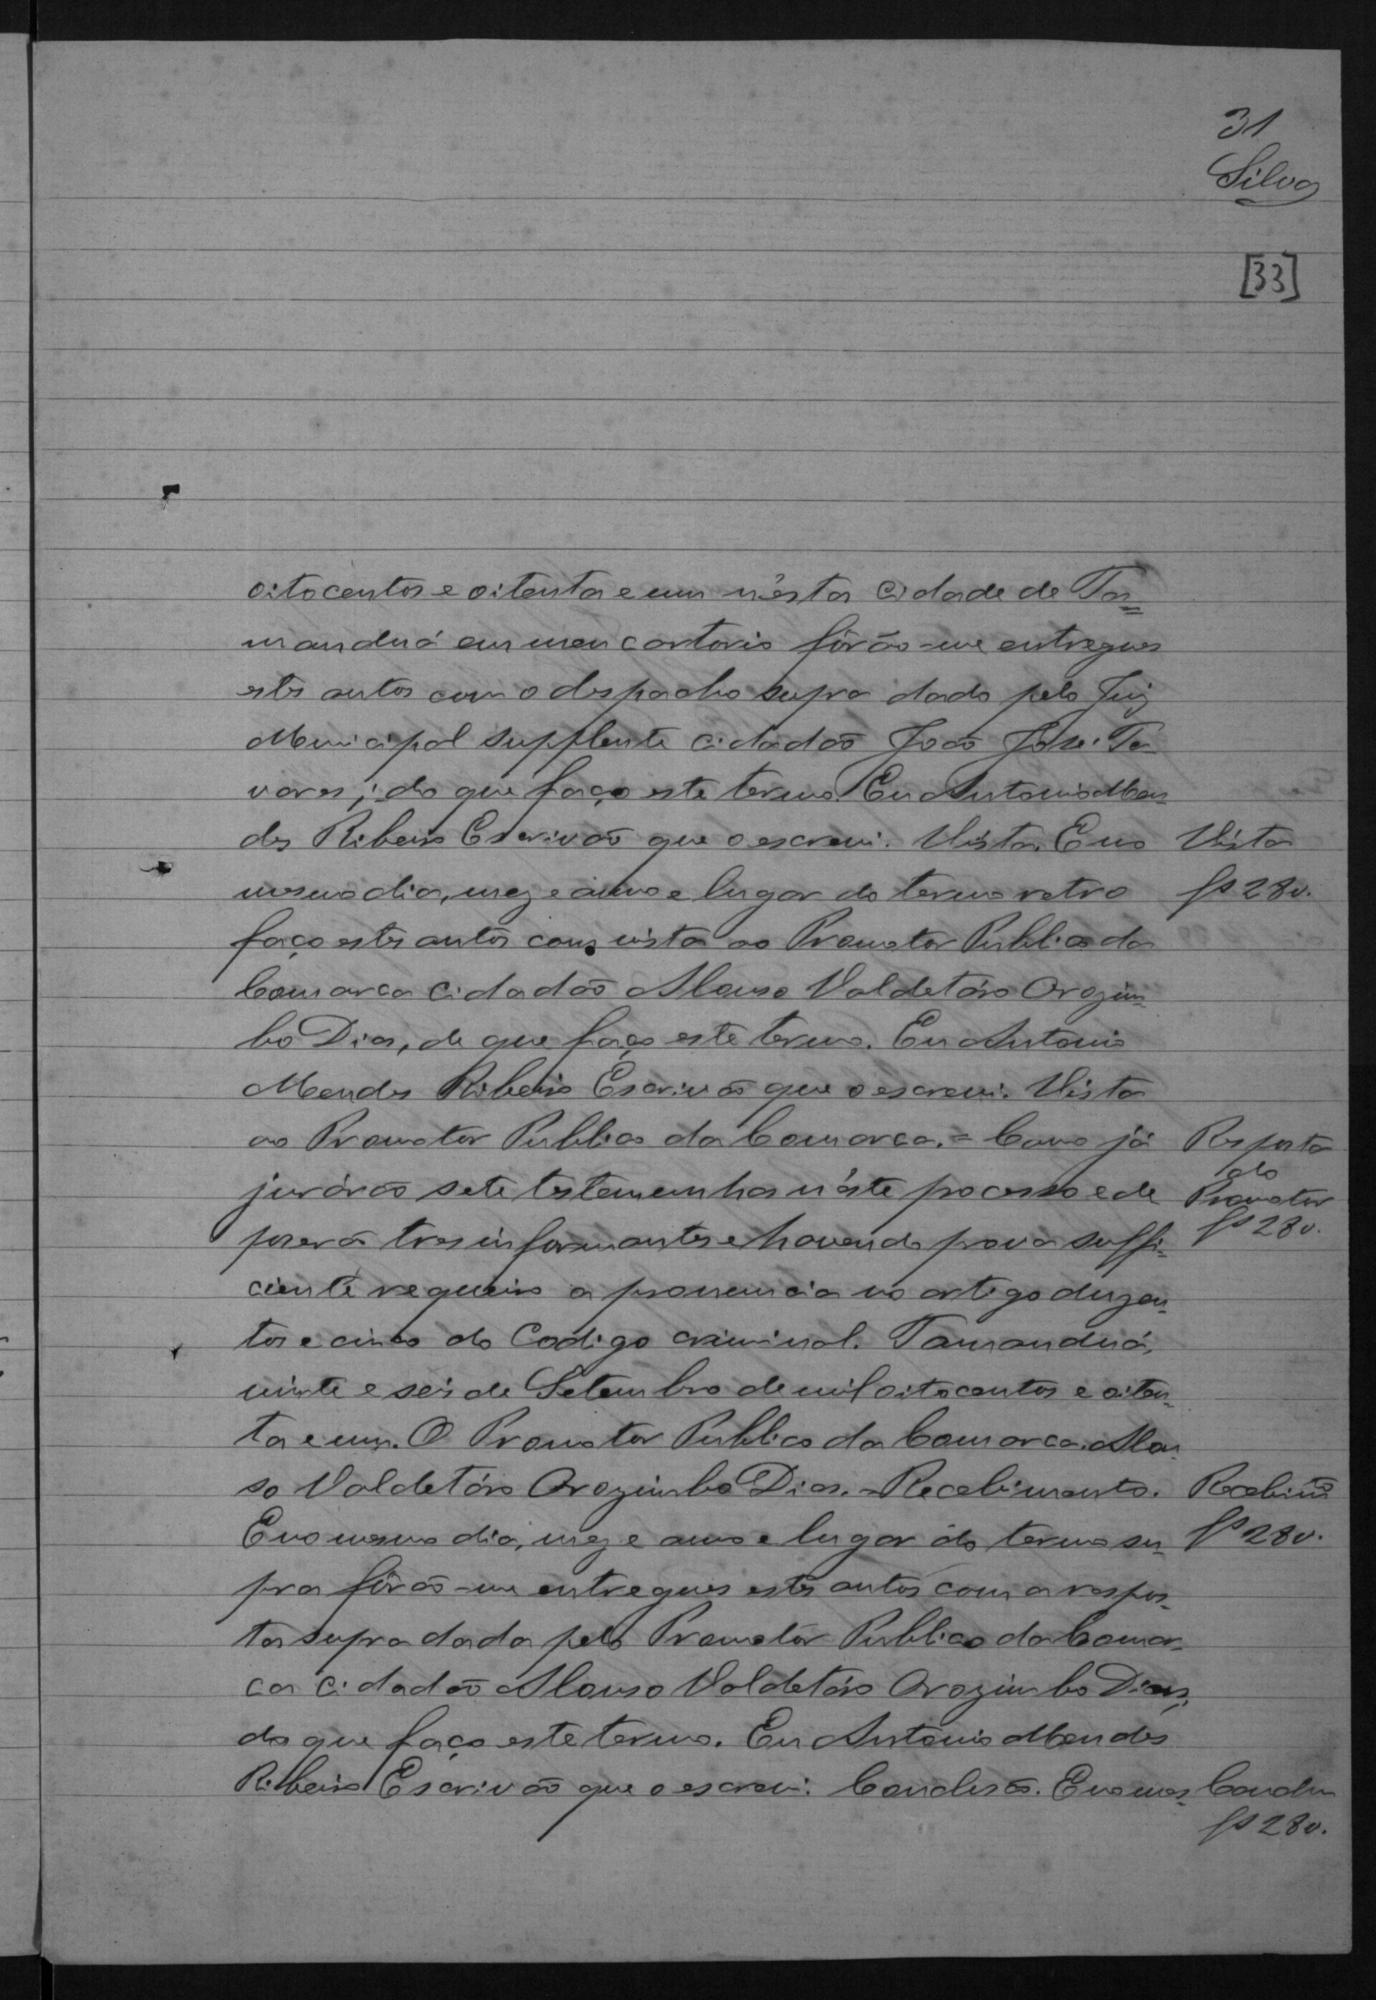 31
Silva
[33]
oitocentos e oitenta e um n'ésta Cidade de Ta=
manduá em meu cartorio fôrão-me entregues
estes autos com o despacho supra dado pelo Juiz
Municipal supplente cidadão João José Ta
vares; do que faço este termo. Eu Antonio Men-
des Ribeiro Escrivão que o escrevi. Vista. E no
Vista
fs 28v.
mesmo dia, mez e anno e lugar do termo retro
faço estes autos com vista ao Promotor Publico da
Comarca cidadão Afonso Valdetáro Orozim-
bo Dias, de que faço este termo. Eu Antonio
Mendes Ribeiro Escrivão que o escrevi. Vista
ao Promotor Publico da Comarca. = Como já
Resposta
do
Promotor
fs 28v.
jurárão sete testemunhas n'este processo e de
poserão tres informantes e havendo prova suffi-
ciente requeiro a pronuncia no artigo duzen-
tos e cinco do Codigo criminal. Tamanduá,
vinte e seis de Setembro de mil oitocentos e oiten-
ta e um. O Promotor Publico da Comarca. Afon
so Valdetáro Orozimbo Dias. = Recebimento.
Recebim.to
fs 28v.
E no mesmo dia, mez e anno e lugar do termo su-
pra fôrão-me entregues estes autos com a respos-
ta supra dada pelo Promotor Publico da Comar-
ca cidadão Afonso Valdetáro Orozimbo Dias,
do que faço este termo. Eu Antonio Mendes
Ribeiro Escrivão que o escrevi. Conclusão. E no mes-
Conclm
fs 28v.